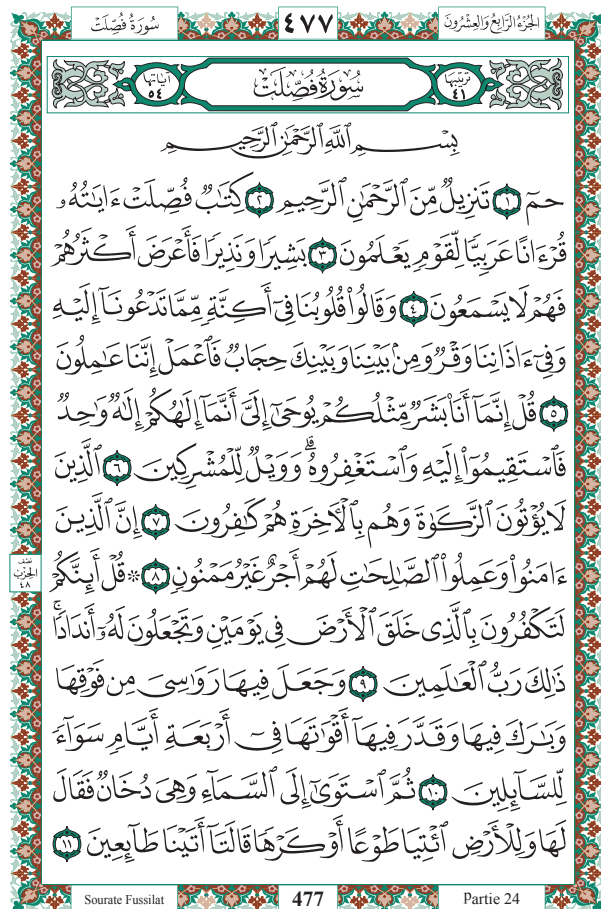 سُورَةُ فُصِّلَتْ ٤٧٧ الجُزْءُ الرَّابِعُ وَالعِشْرُونَ
آيَاتُهَا ٥٤ سُورَةُ فُصِّلَتْ تَرْتِيبُهَا ٤١
بِسْمِ ٱللَّهِ ٱلرَّحْمَٰنِ ٱلرَّحِيمِ
حمٓ ١ تَنزِيلٌ مِّنَ ٱلرَّحْمَٰنِ ٱلرَّحِيمِ ٢ كِتَٰبٌ فُصِّلَتْ ءَايَٰتُهُۥ
قُرْءَانًا عَرَبِيًّا لِّقَوْمٍ يَعْلَمُونَ ٣ بَشِيرًا وَنَذِيرًا فَأَعْرَضَ أَكْثَرُهُمْ
فَهُمْ لَا يَسْمَعُونَ ٤ وَقَالُوا۟ قُلُوبُنَا فِىٓ أَكِنَّةٍ مِّمَّا تَدْعُونَآ إِلَيْهِ
وَفِىٓ ءَاذَانِنَا وَقْرٌ وَمِنۢ بَيْنِنَا وَبَيْنِكَ حِجَابٌ فَٱعْمَلْ إِنَّنَا عَٰمِلُونَ
٥ قُلْ إِنَّمَآ أَنَا۠ بَشَرٌ مِّثْلُكُمْ يُوحَىٰٓ إِلَىَّ أَنَّمَآ إِلَٰهُكُمْ إِلَٰهٌ وَٰحِدٌ
فَٱسْتَقِيمُوٓا۟ إِلَيْهِ وَٱسْتَغْفِرُوهُ ۗ وَوَيْلٌ لِّلْمُشْرِكِينَ ٦ ٱلَّذِينَ
لَا يُؤْتُونَ ٱلزَّكَوٰةَ وَهُم بِٱلْءَاخِرَةِ هُمْ كَٰفِرُونَ ٧ إِنَّ ٱلَّذِينَ
ءَامَنُوا۟ وَعَمِلُوا۟ ٱلصَّٰلِحَٰتِ لَهُمْ أَجْرٌ غَيْرُ مَمْنُونٍ ٨ ۞ قُلْ أَئِنَّكُمْ
نصف
الحزب
٤٨
لَتَكْفُرُونَ بِٱلَّذِى خَلَقَ ٱلْأَرْضَ فِى يَوْمَيْنِ وَتَجْعَلُونَ لَهُۥٓ أَندَادًا ۚ
ذَٰلِكَ رَبُّ ٱلْعَٰلَمِينَ ٩ وَجَعَلَ فِيهَا رَوَٰسِىَ مِن فَوْقِهَا
وَبَٰرَكَ فِيهَا وَقَدَّرَ فِيهَآ أَقْوَٰتَهَا فِىٓ أَرْبَعَةِ أَيَّامٍ سَوَآءً
لِّلسَّآئِلِينَ ١٠ ثُمَّ ٱسْتَوَىٰٓ إِلَى ٱلسَّمَآءِ وَهِىَ دُخَانٌ فَقَالَ
لَهَا وَلِلْأَرْضِ ٱئْتِيَا طَوْعًا أَوْ كَرْهًا قَالَتَآ أَتَيْنَا طَآئِعِينَ ١١
Sourate Fussilat 477 Partie 24